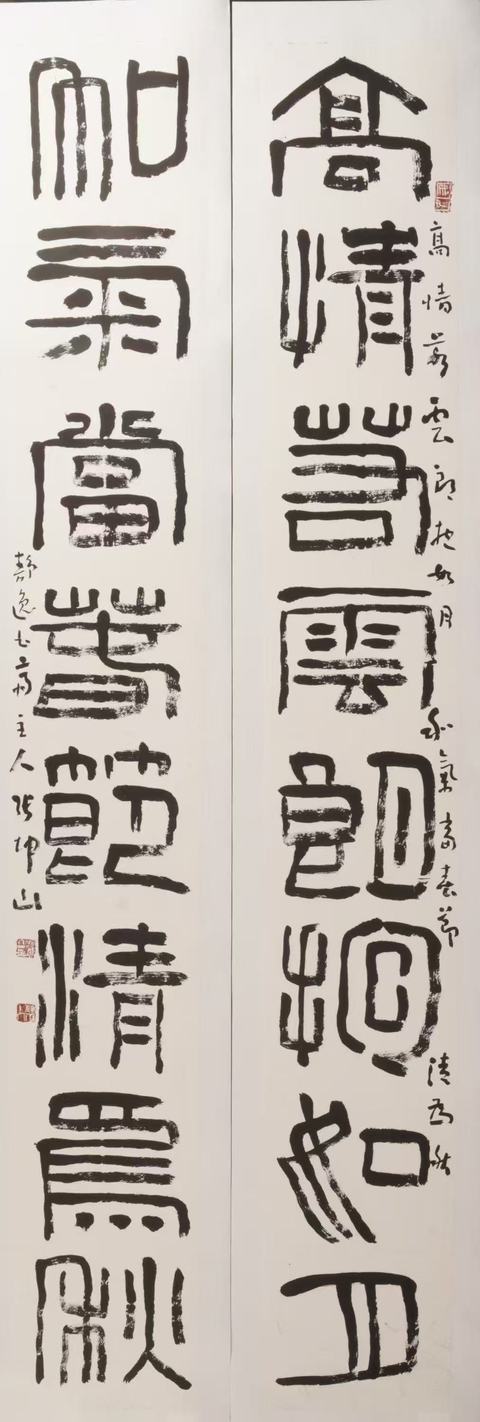 高情若雲朗抱如月
高情若雲朗抱如月 和氣當春節 清為秋
和氣當春節清為秋
靜逸书齋主人張坤山